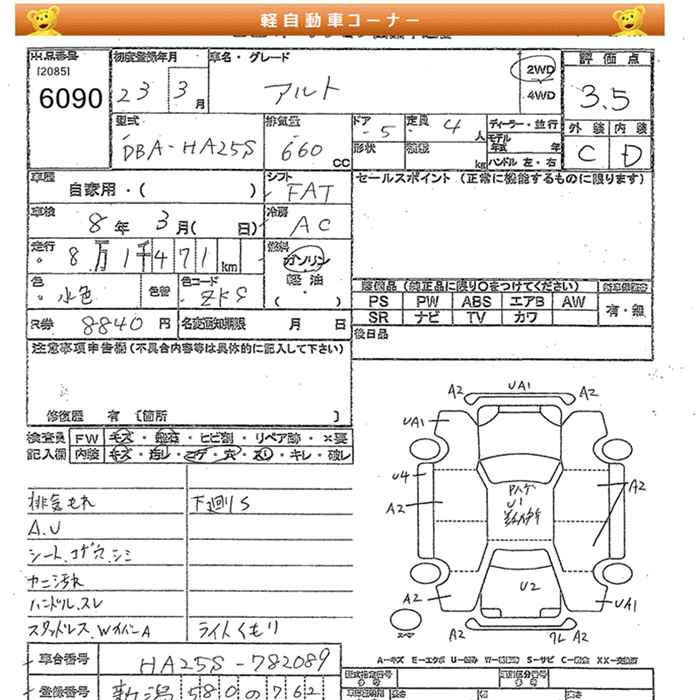 軽自動車コーナー
出品番号 初度登録年月 車名・グレード 2WD 評価点
[2085] 4WD
6090 23 3月 アルト 3.5
型式 排気量 ドア 定員 ディーラー・並行 外装 内装
DBA-HA25S 660 CC 5 4人 モデル 年式 年
形状 積載 kg ハンドル 左・右 C D
車歴 シフト セールスポイント(正常に機能するものに限ります)
自家用・( ) FAT
車検 冷房
8年 3月( 日) AC
走行 燃料
8万1千471km ガソリン
色 色替 色コード 軽油
水色 ZKS ・( )
装備品(純正品に限り○をつけてください)
PS PW ABS エアB AW 有・無
SR ナビ TV カワ
R券 8840円 名変通知期限 月 日
後日品
注意事項申告欄(不具合内容等は具体的に記入して下さい)
修復歴 有 [箇所 ]
検査員 FW キズ・飛石・ヒビ割・リペア跡・×要
記入欄 内装 キズ・汚レ・コゲ・穴・スレ・キレ・破レ
排気もれ 下廻りS
A.U
シート、コゲ穴、シミ
ヤニ汚れ
ハンドル、スレ
スタッドレス、WイパーA ライトくもり
A2 UA1 A2
UA1
U4
A2 A2
U1
U2
A2 UA1
A2 ワレ A2
スペア
A-キズ E-エクボ U-凹み W-補修跡 S-サビ C-腐食 XX-交換済
車台番号 HA25S-782089
登録番号 新潟 580 の 762